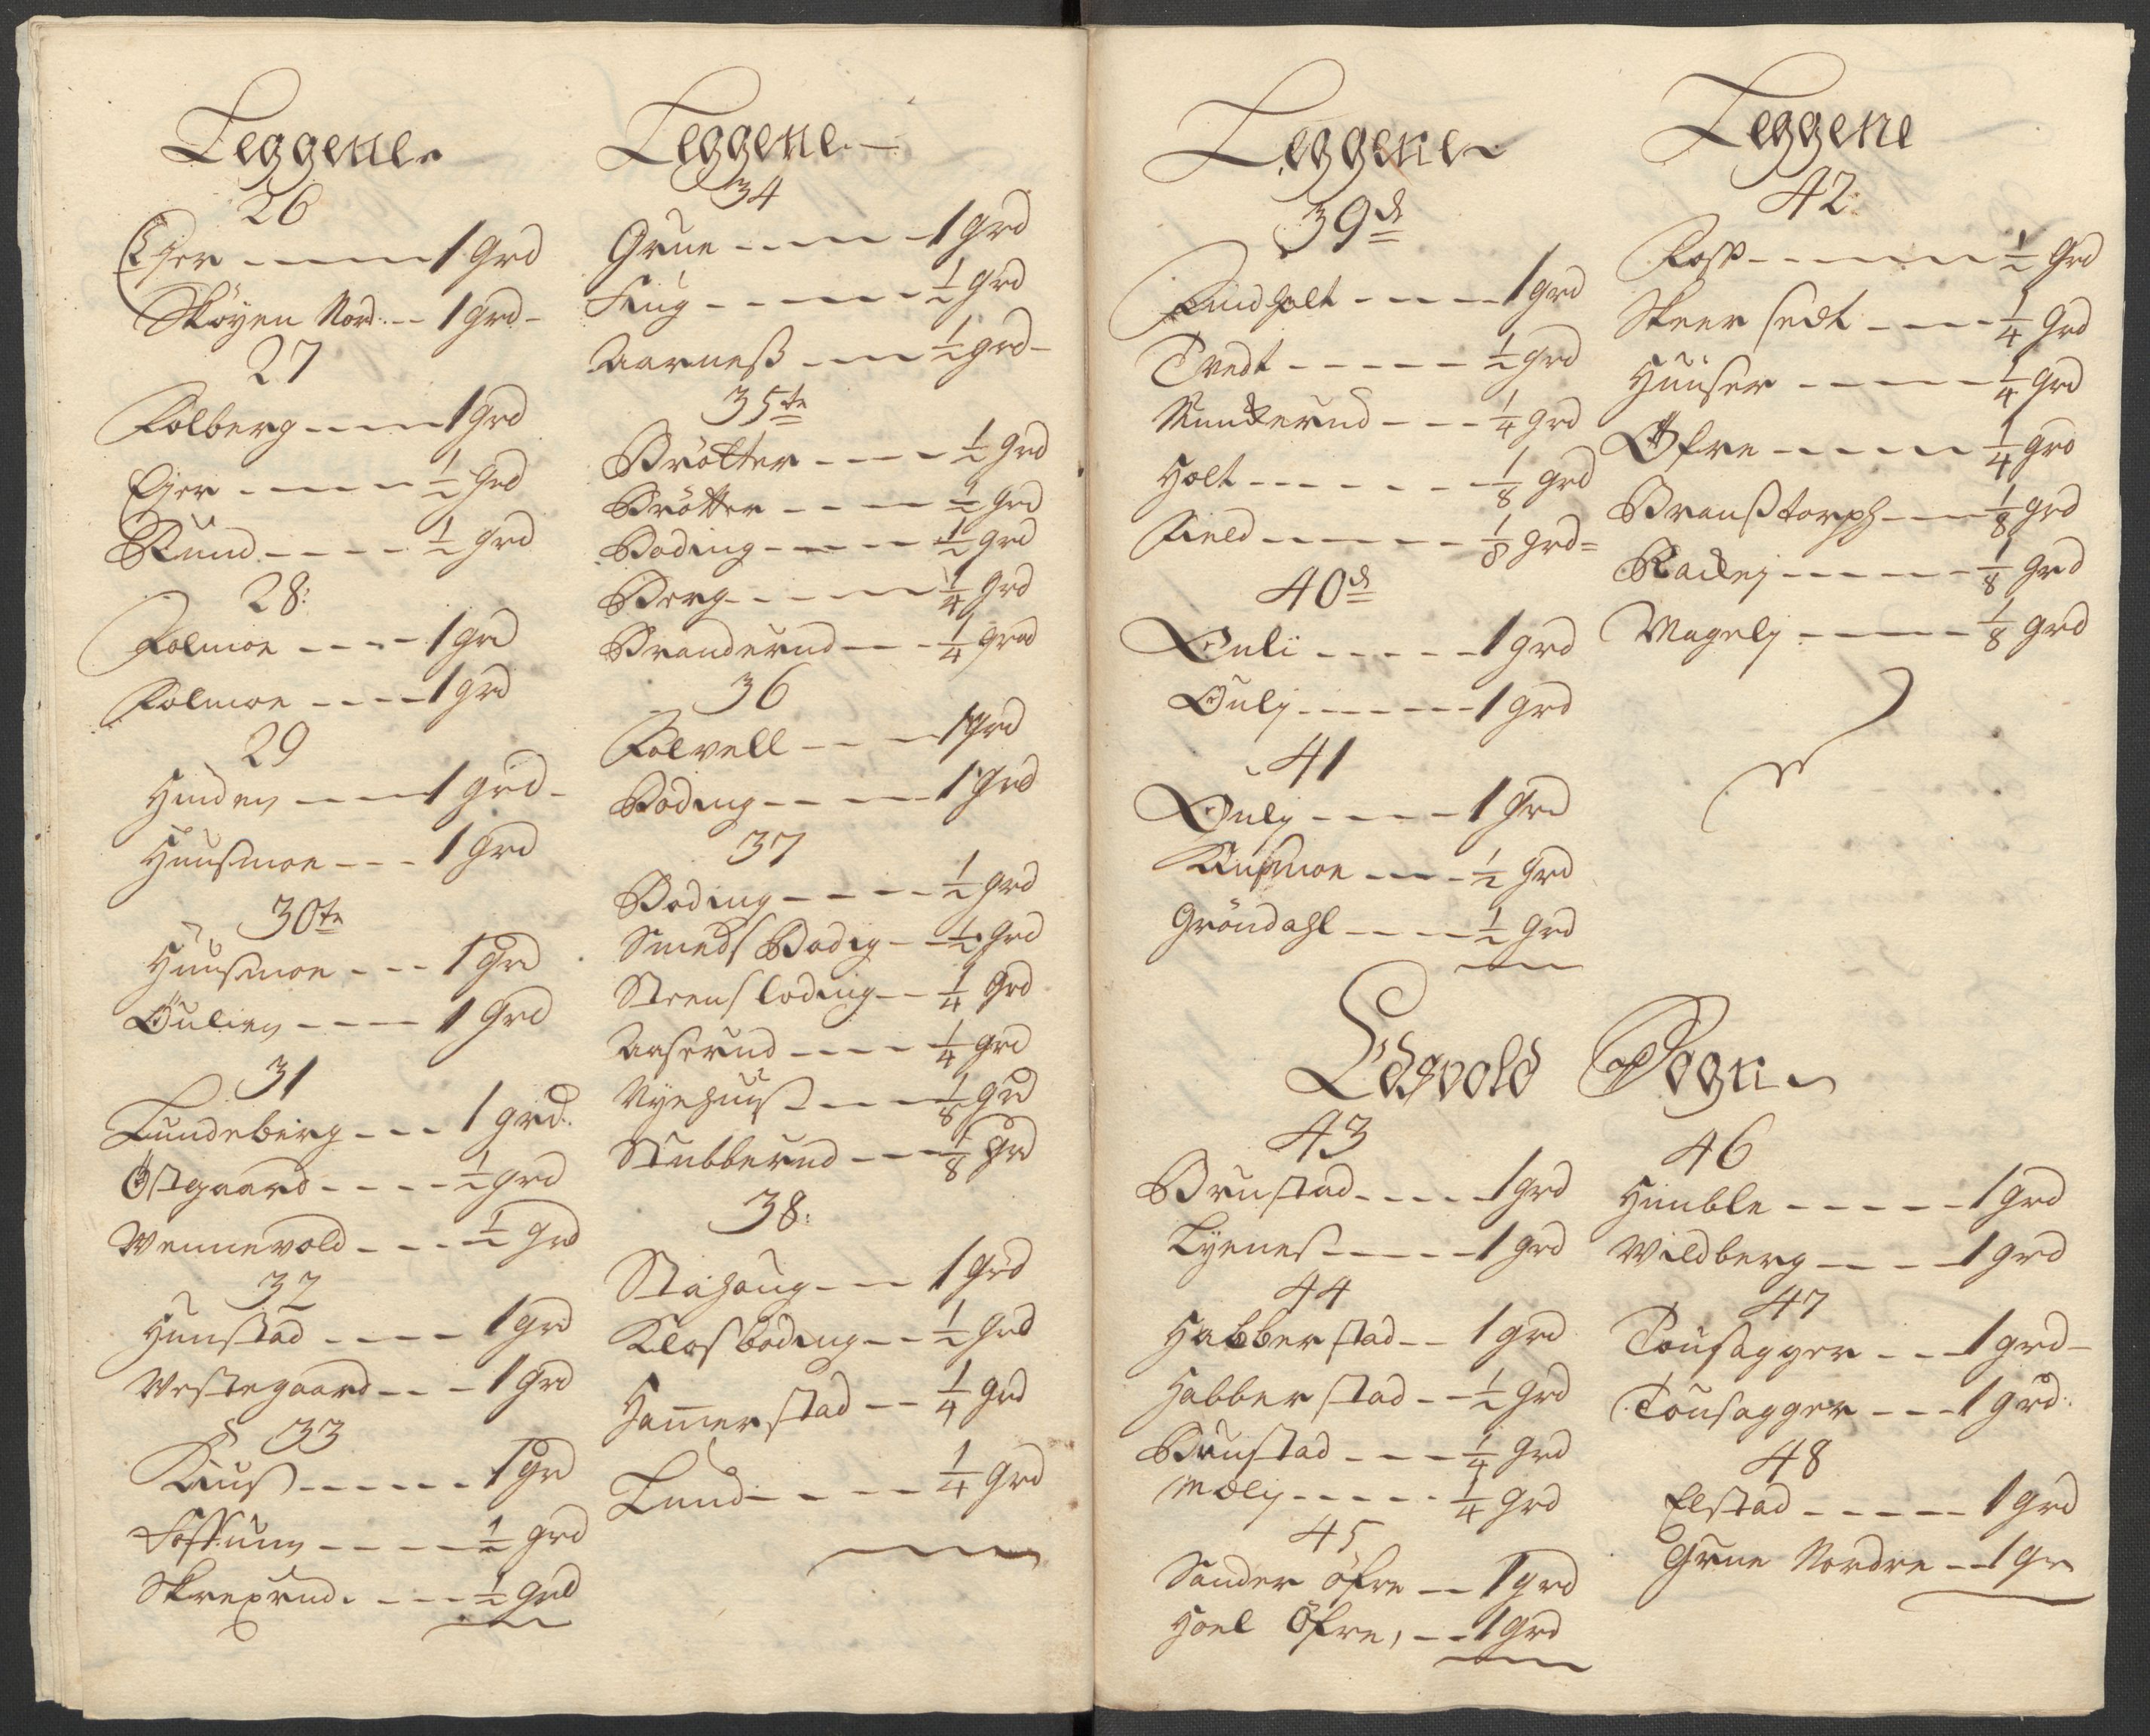 Leggene
26
Ejer 1 Grd
Skøyen Nord 1 grd
27
Folberg 1 Grd
Ejer ½ Grd
Rund ½ Grd
28:
Folmoe 1 grd
Folmoe 1 grd
29
Hinden 1 grd
Huusmoe 1 Grd
30te
Huusmoe 1 Grd
Øulien 1 Grd
31
Lundeberg 1 grd.
Østgaard ½ grd
Wennevold ½ Grd
32
Hunstad 1 grd
Westegaard 1 Grd
33
Kiuus 1 Gr
Fossum ½ grd
Skrexrud ½ grd
Leggene
34
Grue 1 grd
Fiug ½ grd
Aarness ½ grd
35te
Brøtter ½ Grd
Brøtter ½ Grd
Boding ½ grd
Berg ¼ Grd
Branderud ¼ grd
36
Folvell 1 Grd
Boding 1 Grd
37
Boding ½ Grd
Smeds Bodig ½ Grd
Steensboding ¼ Grd
Aaserud ¼ grd
Nyehuus ⅛ Grd
Stubberud ⅛ Grd
38:
Stahaug 1 Grd
Klosboding ½ Grd
Hamerstad ¼ Grd
Lund ¼ Grd
Leggene
39d
Findholt 1 grd
Tvedt ½ grd
Munkerud ¼ grd
Holt ⅛ Grd
Field ⅛ grd
40d
Øuli 1 grd
Øuly 1 grd
41
Øuly 1 Grd
Kusmoe ½ Grd
Grøndahl ½ Grd
Leggene
42:
Foss ½ Grd
Skeersedt ¼ Grd
Huuser ¼ Grd
Øfre ¼ Grd
Braustorph ⅛ Grd
Rackey ⅛ Grd
Magely ⅛ Grd
Edsvold Sogn
43
Brustad 1 grd
Lyenes 1 grd
44
Habberstad 1 grd
Habberstad ½ Grd
Brustad ¼ Grd
Mely ¼ Grd
45
Sander øfre 1 grd
Hoel Øfre, 1 Grd
46
Himble 1 Grd
Wildberg 1 grd
47
Tousagger 1 grd
Tousagger 1 grd:
48
Elstad 1 Grd
Grue Nordre 1 Gr